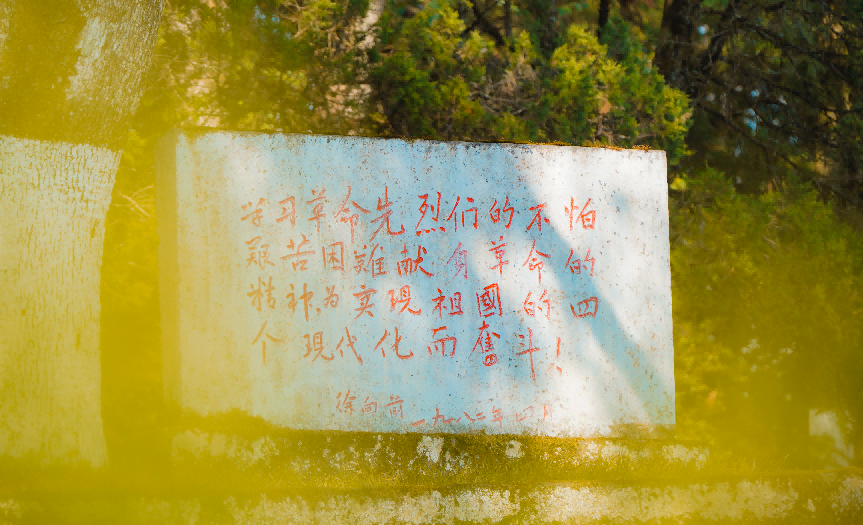 学习革命先烈们的不怕
艰苦困難献身革命的
精神,为实现祖國的四
个现代化而奮斗!
徐向前
一九八二年四月